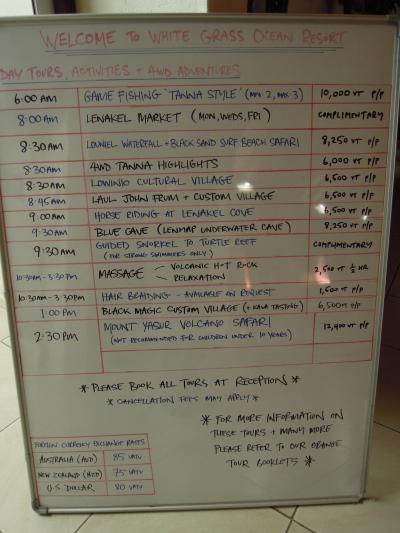 WELCOME TO WHITE GRASS OCEAN RESORT
DAY TOURS, ACTIVITIES + 4WD ADVENTURES
6:00 AM GAME FISHING 'TANNA STYLE' (MIN. 2, MAX. 3) 10,000 VT P/P
8:00 AM LENAKEL MARKET (MON, WEDS, FRI) COMPLIMENTARY
8:30 AM LOUNIEL WATERFALL + BLACK SAND SURF BEACH SAFARI 8,250 VT P/P
8:30 AM 4WD TANNA HIGHLIGHTS 6,000 VT P/P
8:30 AM LOWINIO CULTURAL VILLAGE 6,500 VT P/P
8:45 AM LAUL JOHN FRUM + CUSTOM VILLAGE 6,500 VT P/P
9:00 AM HORSE RIDING AT LENAKEL COVE 6,500 VT P/P
9:30 AM BLUE CAVE (LENMAP UNDERWATER CAVE) 8,250 VT P/P
9:30 AM GUIDED SNORKEL TO TURTLE REEF COMPLIMENTARY
(FOR STRONG SWIMMERS ONLY)
10:30AM - 3:30PM MASSAGE - VOLCANIC HOT ROCK 2,500 VT ½ HR
- RELAXATION
10:30AM - 3:30PM HAIR BRAIDING - AVAILABLE ON REQUEST 1,500 VT P/P
1:00 PM BLACK MAGIC CUSTOM VILLAGE (+ KAVA TASTING) 6,500 VT P/P
2:30 PM MOUNT YASUR VOLCANO SAFARI 12,400 VT P/P
(NOT RECOMMENDED FOR CHILDREN UNDER 10 YEARS)
* PLEASE BOOK ALL TOURS AT RECEPTION *
* CANCELLATION FEES MAY APPLY *
* FOR MORE INFORMATION ON
THESE TOURS + MANY MORE
PLEASE REFER TO OUR ORANGE
TOUR BOOKLETS *
FOREIGN CURRENCY EXCHANGE RATES
AUSTRALIA (AUD) 85 VATU
NEW ZEALAND (NZD) 75 VATU
U.S. DOLLAR 80 VATU